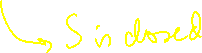 S is closed